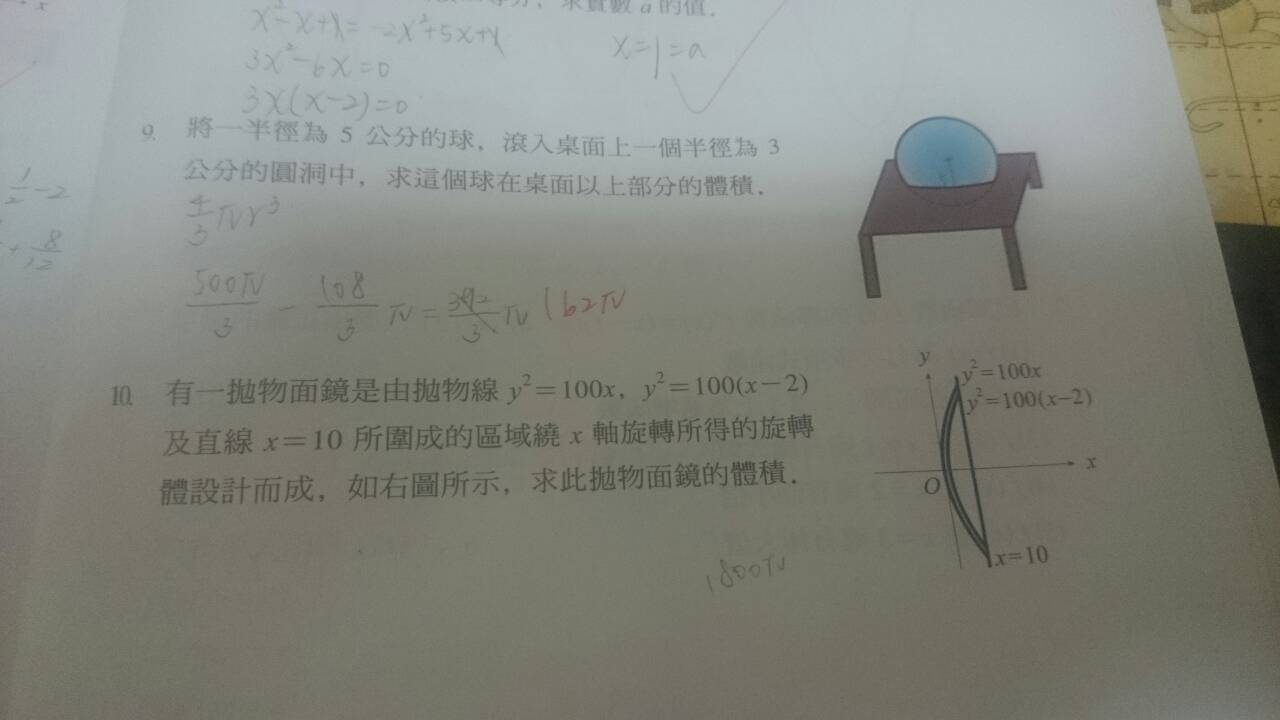 求實數 a 的值.
x²-x+1=-2x²+5x+1
x=1=a
3x²-6x=0
3x(x-2)=0
9. 將一半徑為 5 公分的球，滾入桌面上一個半徑為 3
公分的圓洞中，求這個球在桌面以上部分的體積.
1/2-2
4/3πr³
+8/12
500π/3 - 108/3 π = 392/3 π 162π
10. 有一拋物面鏡是由拋物線 y²=100x，y²=100(x-2)
及直線 x=10 所圍成的區域繞 x 軸旋轉所得的旋轉
體設計而成，如右圖所示，求此拋物面鏡的體積.
y
y²=100x
y²=100(x-2)
x
O
x=10
1800π